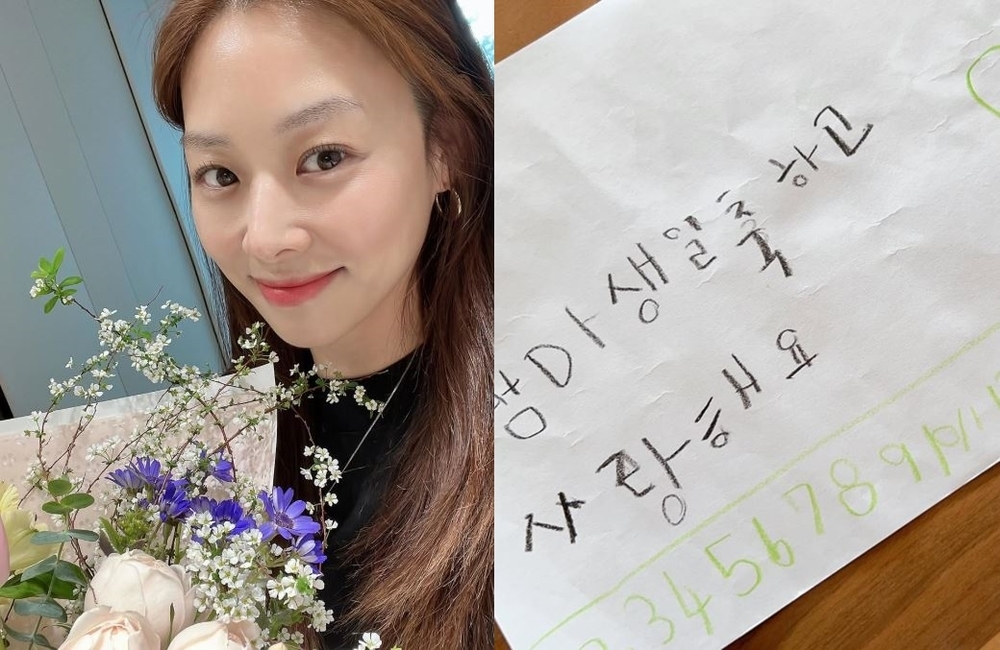 엄마 생일축 하고
사랑해요
3 4 5 6 7 8 9 10